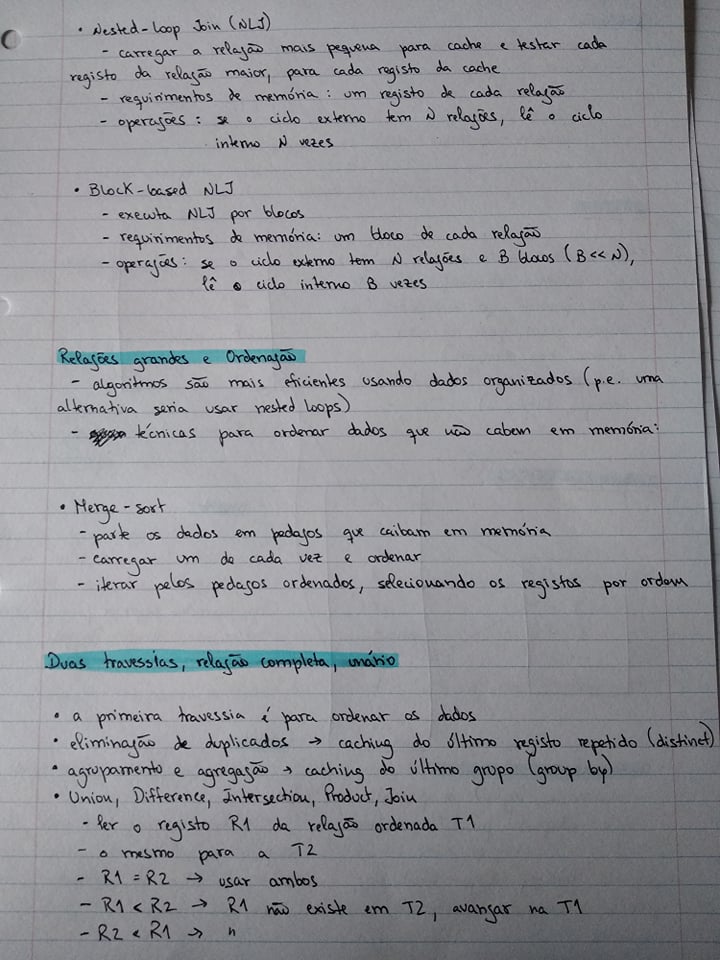 • Nested-loop Join (NLJ)
- carregar a relação mais pequena para cache e testar cada
registo da relação maior, para cada registo da cache
- requirimentos de memória: um registo de cada relação
- operações: se o ciclo externo tem N relações, lê o ciclo
interno N vezes
• Block-based NLJ
- executa NLJ por blocos
- requirimentos de memória: um bloco de cada relação
- operações: se o ciclo externo tem N relações e B blocos (B << N),
lê o ciclo interno B vezes
Relações grandes e Ordenação
- algoritmos são mais eficientes usando dados organizados (p.e. uma
alternativa seria usar nested loops)
- técnicas para ordenar dados que não cabem em memória:
• Merge-sort
- parte os dados em pedaços que caibam em memória
- carregar um de cada vez e ordenar
- iterar pelos pedaços ordenados, selecionando os registos por ordem
Duas travessias, relação completa, unário
• a primeira travessia é para ordenar os dados
• eliminação de duplicados → caching do último registo repetido (distinct)
• agrupamento e agregação → caching do último grupo (group by)
• Union, Difference, Intersection, Product, Join
- ler o registo R1 da relação ordenada T1
- o mesmo para a T2
- R1 = R2 → usar ambos
- R1 < R2 → R1 não existe em T2, avançar na T1
- R2 < R1 → "